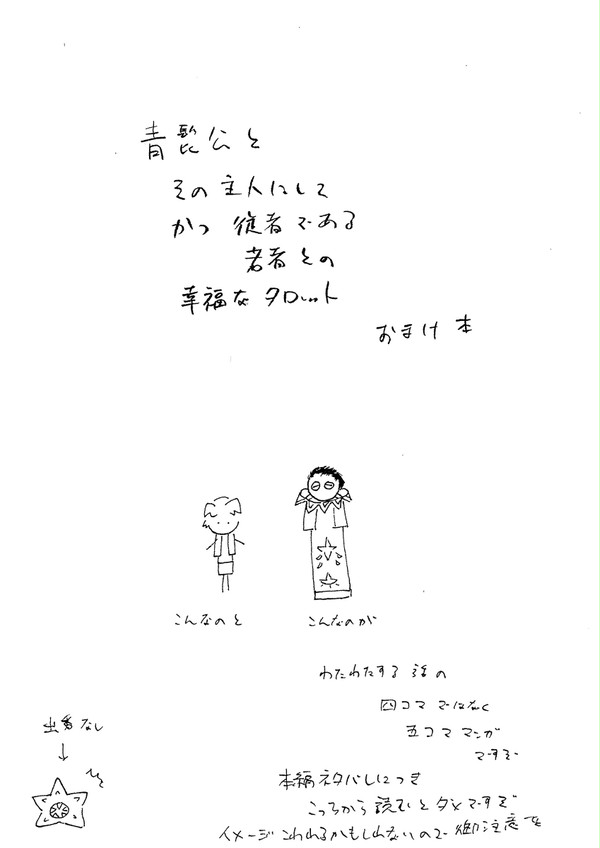 青髭公と
その主人にして
かつ従者である
若者との
幸福なタロット
おまけ本
こんなのと
こんなのが
わたわたする話の
四コマではなく
五コママンガ
ですぞ
出番なし
本編ネタバレにつき
こっちから読むとダメですぞ
イメージこわれるかもしれないので御注意を